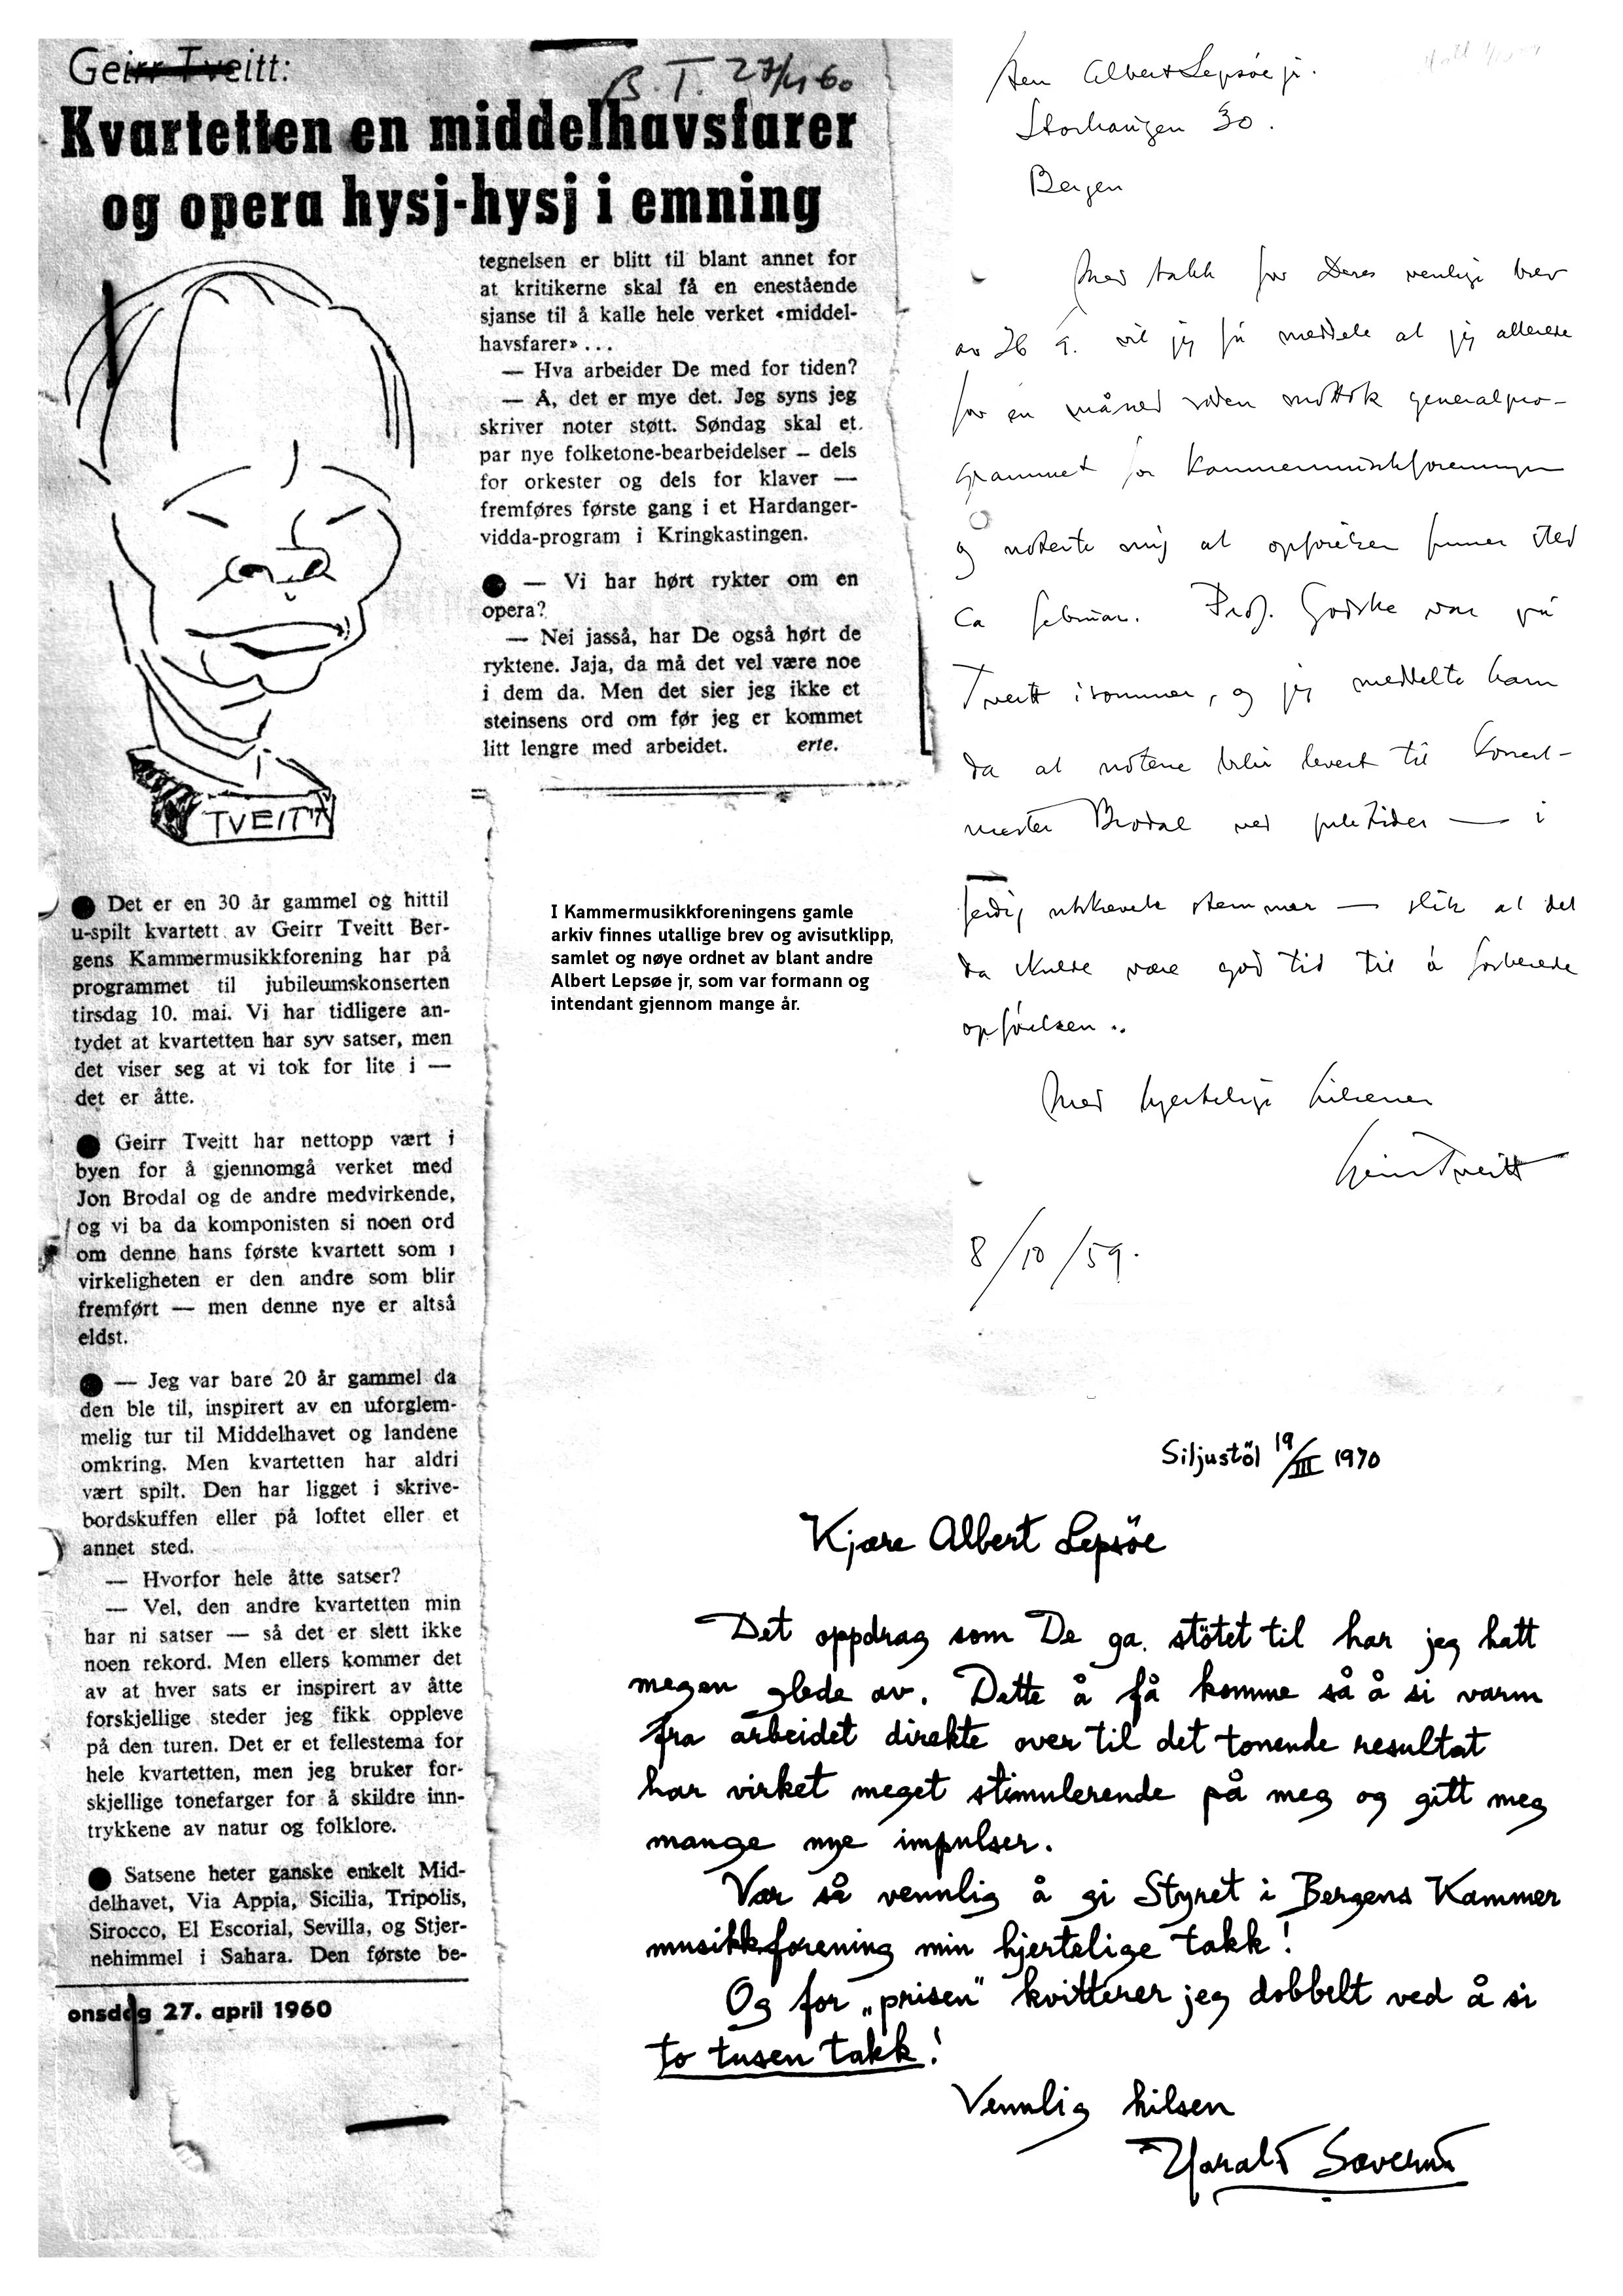 Geirr Tveitt:
B.T. 27/4 60
Kvartetten en middelhavsfarer
og opera hysj-hysj i emning
TVEITT
● Det er en 30 år gammel og hittil
u-spilt kvartett av Geirr Tveitt Ber-
gens Kammermusikkforening har på
programmet til jubileumskonserten
tirsdag 10. mai. Vi har tidligere an-
tydet at kvartetten har syv satser, men
det viser seg at vi tok for lite i —
det er åtte.
● Geirr Tveitt har nettopp vært i
byen for å gjennomgå verket med
Jon Brodal og de andre medvirkende,
og vi ba da komponisten si noen ord
om denne hans første kvartett som i
virkeligheten er den andre som blir
fremført — men denne nye er altså
eldst.
● — Jeg var bare 20 år gammel da
den ble til, inspirert av en uforglem-
melig tur til Middelhavet og landene
omkring. Men kvartetten har aldri
vært spilt. Den har ligget i skrive-
bordskuffen eller på loftet eller et
annet sted.
— Hvorfor hele åtte satser?
— Vel, den andre kvartetten min
har ni satser — så det er slett ikke
noen rekord. Men ellers kommer det
av at hver sats er inspirert av åtte
forskjellige steder jeg fikk oppleve
på den turen. Det er et fellestema for
hele kvartetten, men jeg bruker for-
skjellige tonefarger for å skildre inn-
trykkene av natur og folklore.
● Satsene heter ganske enkelt Mid-
delhavet, Via Appia, Sicilia, Tripolis,
Sirocco, El Escorial, Sevilla, og Stjer-
nehimmel i Sahara. Den første be-
onsdag 27. april 1960
tegnelsen er blitt til blant annet for
at kritikerne skal få en enestående
sjanse til å kalle hele verket «middel-
havsfarer» . . .
— Hva arbeider De med for tiden?
— Å, det er mye det. Jeg syns jeg
skriver noter støtt. Søndag skal et.
par nye folketone-bearbeidelser — dels
for orkester og dels for klaver —
fremføres første gang i et Hardanger-
vidda-program i Kringkastingen.
● — Vi har hørt rykter om en
opera?
— Nei jasså, har De også hørt de
ryktene. Jaja, da må det vel være noe
i dem da. Men det sier jeg ikke et
steinsens ord om før jeg er kommet
litt lengre med arbeidet. erte.
I Kammermusikkforeningens gamle
arkiv finnes utallige brev og avisutklipp,
samlet og nøye ordnet av blant andre
Albert Lepsøe jr, som var formann og
intendant gjennom mange år.
Herr Albert Lepsøe jr.
Storhaugen 30.
Bergen
Med takk for Deres venlige brev
av 26 9. vil jeg få meddele at jeg allerede
for en måned siden mottok generalpro-
grammet for Kammermusikkforeningen
og noterte mig at opførelsen finner sted
ca februar. Prof. Godske var på
Tveitt i sommer, og jeg meddelte ham
da at notene blir levert til Konsert-
mester Brodal ved juletider — i
ferdig utskrevete stemmer — slik at det
da skulde være god tid til å forberede
opførelsen..
Med hjertelige hilsener
Geirr Tveitt
8/10/59.
Siljustöl 19/III 1970
Kjære Albert Lepsöe
Det oppdrag som De ga stötet til har jeg hatt
megen glede av. Dette å få komme så å si varm
fra arbeidet direkte over til det tonende resultat
har virket meget stimulerende på meg og gitt meg
mange nye impulser.
Vær så vennlig å gi Styret i Bergens Kammer
musikkforening min hjertelige takk!
Og for „prisen" kvitterer jeg dobbelt ved å si
to tusen takk!
Vennlig hilsen
Harald Sæverud